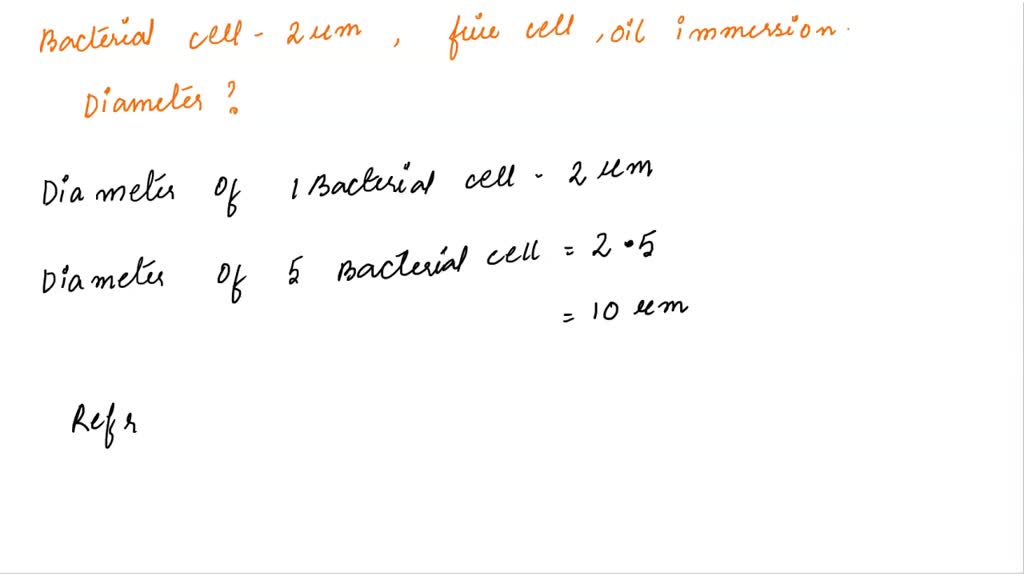 Bacterial cell - 2 um , five cell , oil immersion .
Diameter ?
Diameter of 1 Bacterial cell - 2 um
Diameter of 5 Bacterial cell = 2 • 5
= 10 um
Refr